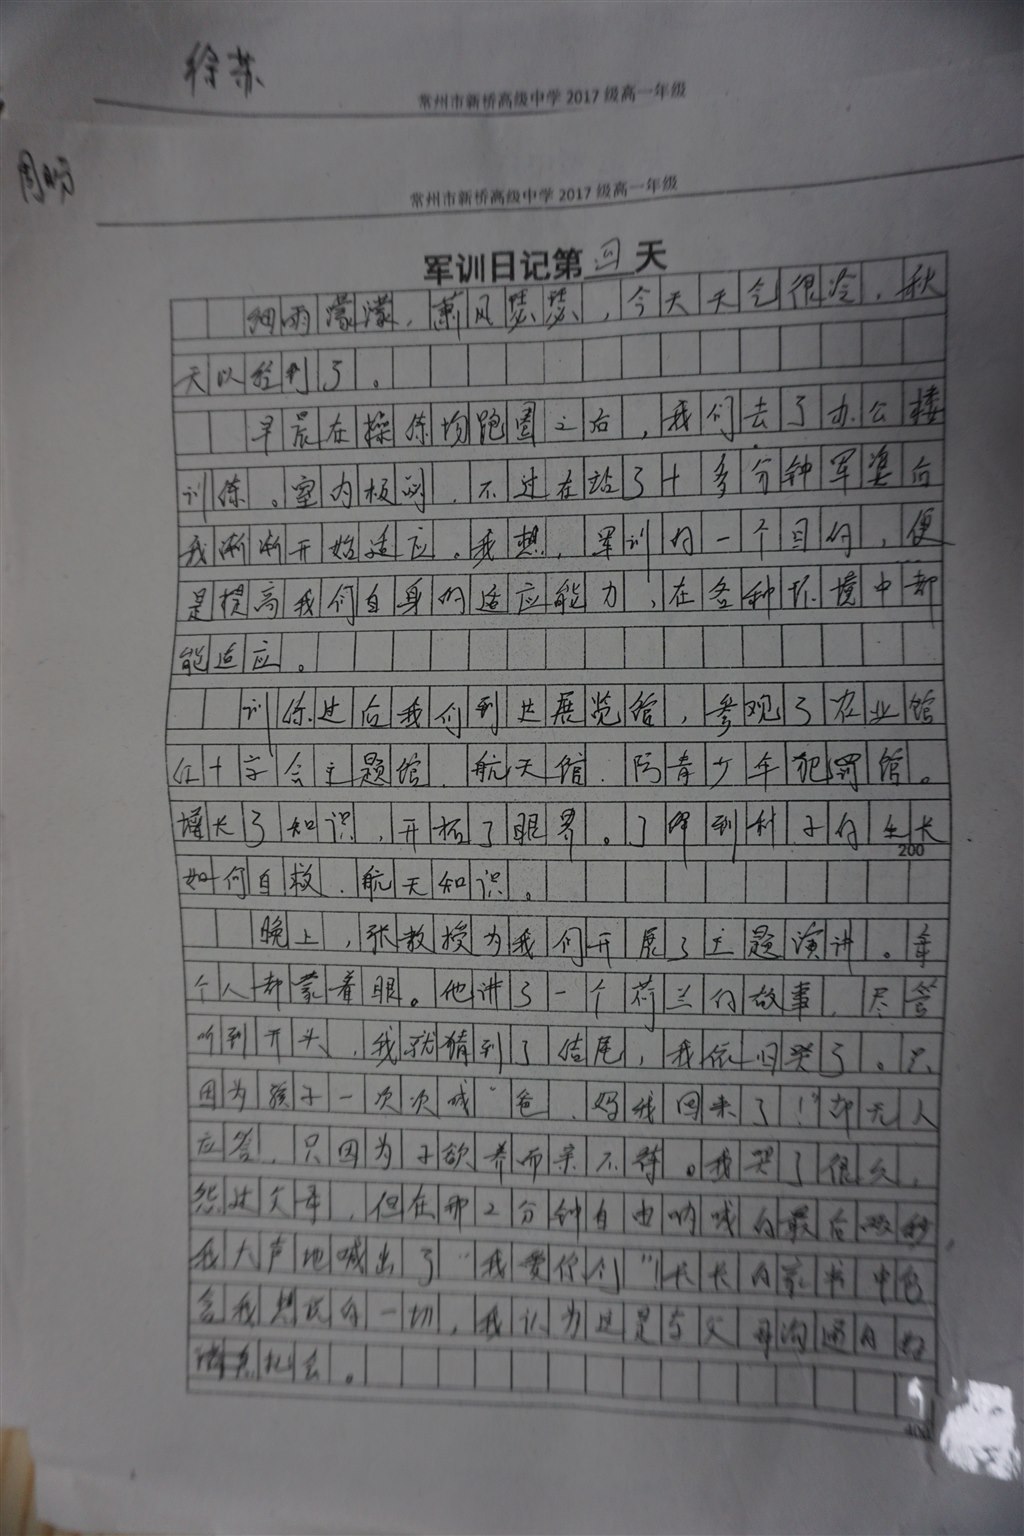 徐荪
常州市新桥高级中学 2017 级高一年级
周昉
常州市新桥高级中学 2017 级高一年级
军训日记第四天
细雨濛濛，萧风瑟瑟，今天天气很冷，秋
天以经到了。
早晨在操练场跑圈之后，我们去了办公楼
训练。室内极闷，不过在站了十多分钟军姿后
我渐渐开始适应。我想，军训的一个目的，便
是提高我们自身的适应能力，在各种环境中都
能适应。
训练过后我们到达展览馆，参观了农业馆
红十字会主题馆、航天馆、防青少年犯罪馆。
增长了知识，开拓了眼界。了解到种子的生长
200
如何自救、航天知识。
晚上，张教授为我们开展了主题演讲。每
个人都蒙着眼。他讲了一个荷兰的故事，尽管
听到开头，我就猜到了结尾，我依旧哭了。只
因为孩子一次次喊“爸、妈我回来了！”却无人
应答，只因为子欲养而亲不待。我哭了很久，
怨过父母，但在那2分钟自由呐喊的最后两秒
我大声地喊出了“我爱你们”！长长的家书中包
含我想说的一切，我认为这是与父母沟通的好
机会。
400